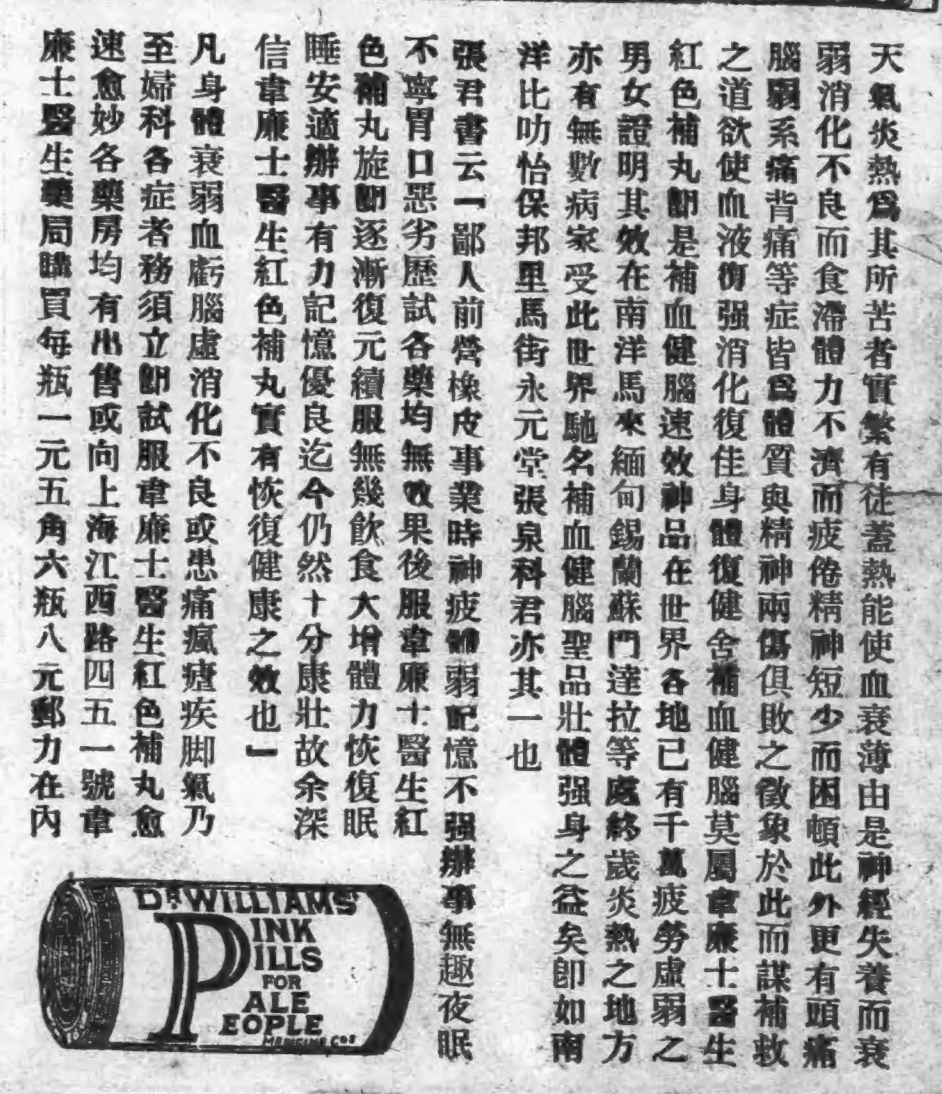 天氣炎熱爲其所苦者實繁有徒蓋熱能使血衰薄由是神經失養而衰
弱消化不良而食滯體力不濟而疲倦精神短少而困頓此外更有頭痛
腦弱系痛背痛等症皆爲體質與精神兩傷俱敗之徵象於此而謀補救
之道欲使血液復强消化復佳身體復健舍補血健腦莫屬韋廉士醫生
紅色補丸卽是補血健腦速效神品在世界各地已有千萬疲勞虛弱之
男女證明其效在南洋馬來緬甸錫蘭蘇門達拉等處終歲炎熱之地方
亦有無數病家受此世界馳名補血健腦聖品壯體强身之益矣卽如南
洋比叻怡保邦里馬街永元堂張泉科君亦其一也
張君書云「鄙人前營橡皮事業時神疲體弱記憶不强辦事無趣夜眠
不寧胃口惡劣歷試各藥均無效果後服韋廉士醫生紅
色補丸旋卽逐漸復元續服無幾飲食大增體力恢復眠
睡安適辦事有力記憶優良迄今仍然十分康壯故余深
信韋廉士醫生紅色補丸實有恢復健康之效也」
凡身體衰弱血虧腦虛消化不良或患痛瘋瘧疾脚氣乃
至婦科各症者務須立卽試服韋廉士醫生紅色補丸愈
速愈妙各藥房均有出售或向上海江西路四五一號韋
廉士醫生藥局購買每瓶一元五角六瓶八元郵力在內
DR WILLIAMS'
PINK
PILLS
FOR
PALE
PEOPLE
MEDICINE COS